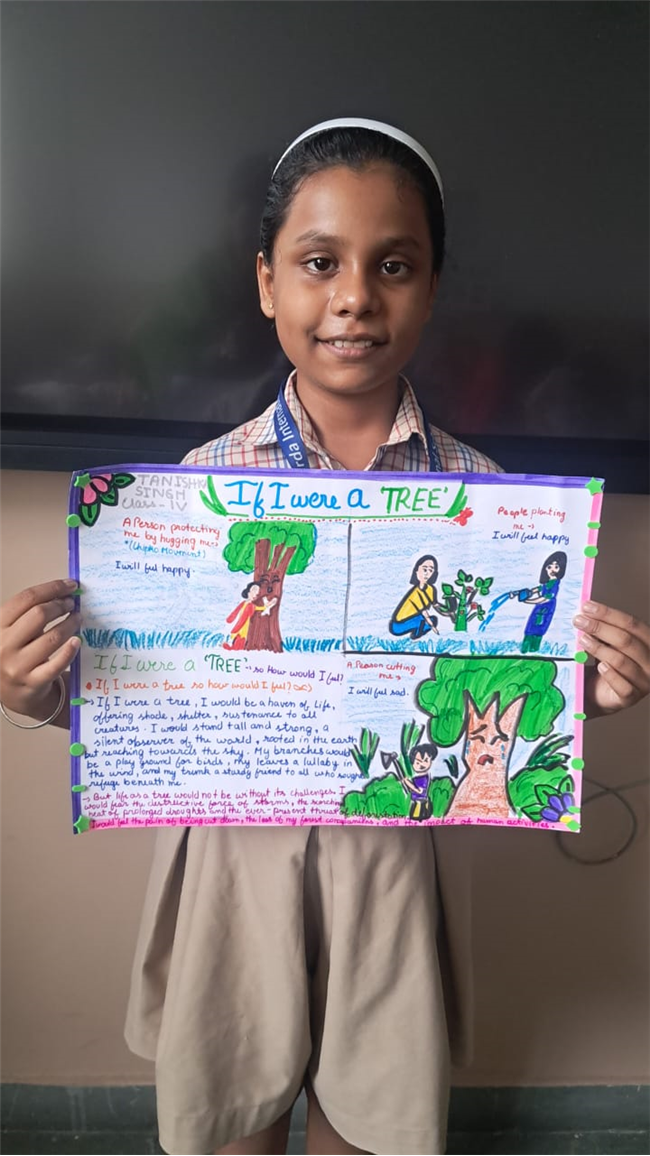 rda Interna
TANISHK
SINGH
Class - IV
If I were A 'TREE'
A Person protecting
me by hugging me→
*(Chipko Movement)
I will feel happy.
People planting
me →
I will feel happy
If I were a 'TREE'- so How would I feel?
If I were a tree so how would I feel?
→ If I were a tree, I would be a haven of life,
offering shade, shelter, sustenance to all
creatures. I would stand tall and strong, a
silent observer of the world, rooted in the earth
but reaching towards the sky. My branches would
be a play ground for birds, my leaves a lullaby in
the wind, and my trunk a sturdy friend to all who sought
refuge beneath me.
→ But life as a tree would not be without its challenges. I
would fear the destructive force of storms, the searching
heat of prolonged droughts and the ever-present threat of deforestation.
I would feel the pain of being cut down, the loss of my forest companions, and the impact of human activities.
A Person cutting
me →
I will feel sad.